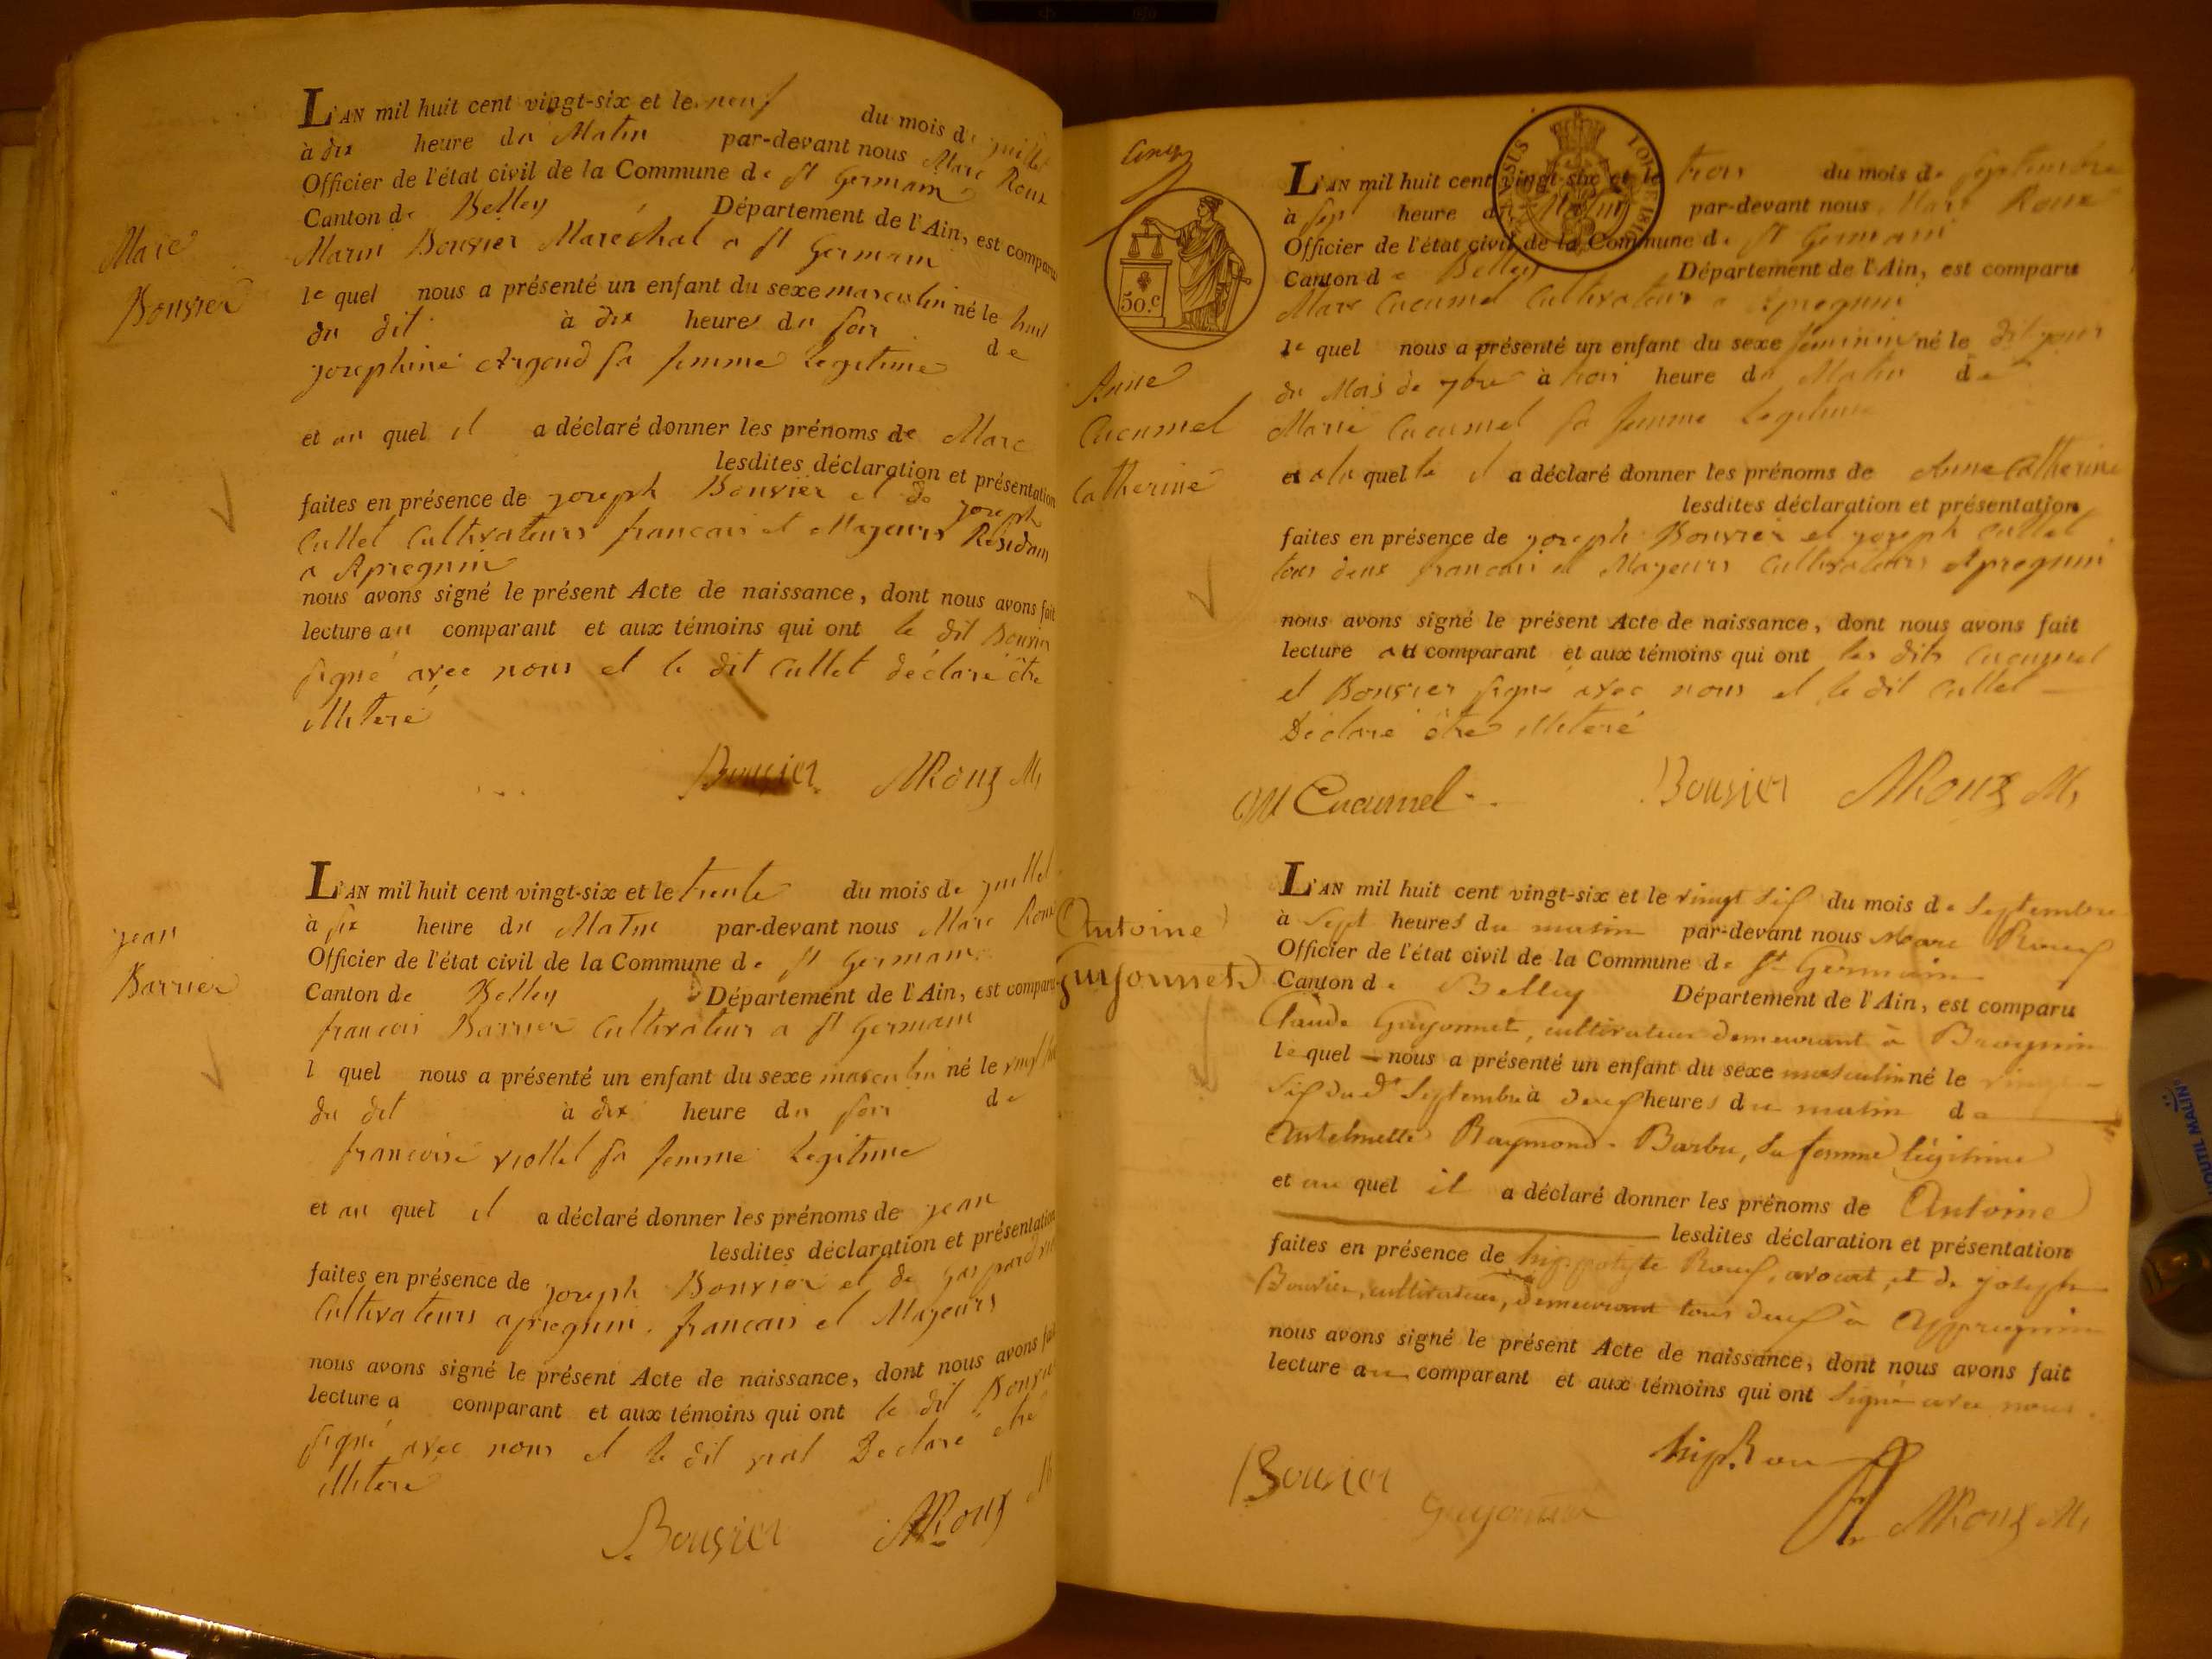 Marc
Bouvier
L'AN mil huit cent vingt-six et le neuf du mois de juillet
à dix heure du Matin par-devant nous Marc Roux
Officier de l'état civil de la Commune de St Germain
Canton de Belley Département de l'Ain, est comparu
Marin Bouvier Marechal a St Germain
le quel nous a présenté un enfant du sexe masculin né le huit
du dit à dix heures du soir de
josephine Argoud sa femme Legitime
et au quel il a déclaré donner les prénoms de Marc
lesdites déclaration et présentation
faites en présence de joseph Bouvier et de joseph
Cullet Cultivateurs francais et Majeurs Residans
a Apregnin
nous avons signé le présent Acte de naissance, dont nous avons fait
lecture au comparant et aux témoins qui ont le dit Bouvier
signé avec nous et le dit Cullet déclaré être
illiteré
Bouvier MRoux M
jean
Barrier
L'AN mil huit cent vingt-six et le trente du mois de juillet
à six heure du Matin par-devant nous Marc Roux
Officier de l'état civil de la Commune de St Germain
Canton de Belley Département de l'Ain, est comparu
francois Barrier Cultivateur a St Germain
l quel nous a présenté un enfant du sexe masculin né le vingt
du dit à dix heure du soir de
francoise viollet sa femme Legitime
et au quel il a déclaré donner les prénoms de jean
lesdites déclaration et présentation
faites en présence de joseph Bouvier et de gaspard
Cultivateurs apregnin, francais et Majeurs
nous avons signé le présent Acte de naissance, dont nous avons fait
lecture a comparant et aux témoins qui ont le dit Bouvier
signé avec nous et le dit Declaré être
illiteré
Bouvier MRoux M
50.c
LOI DE 1816
Anne
Cucumel
Catherine
L'AN mil huit cent vingt-six et le trois du mois de septembre
à sept heure du Matin par-devant nous Marc Roux
Officier de l'état civil de la Commune de St Germain
Canton de Belley Département de l'Ain, est comparu
Marc Cucumel Cultivateur a Apregnin
le quel nous a présenté un enfant du sexe feminin né le dit jour
du Mois de 7bre à trois heure du Matin de
Marie Cucumel sa femme Legitime
et a la quelle il a déclaré donner les prénoms de Anne Catherine
lesdites déclaration et présentation
faites en présence de joseph Bouvier et joseph Cullet
tous deux francais et Majeurs Cultivateurs Apregnin
nous avons signé le présent Acte de naissance, dont nous avons fait
lecture au comparant et aux témoins qui ont les dits Cucumel
et Bouvier signé avec nous et le dit Cullet
Déclaré être illiteré
M Cucumel Bouvier MRoux M
Antoine
Guyonnet
L'AN mil huit cent vingt-six et le vingt six du mois de Septembre
à Sept heures du matin par-devant nous Marc Roux
Officier de l'état civil de la Commune de St Germain
Canton de Belley Département de l'Ain, est comparu
Claude Guyonnet, cultivateur demeurant à Brognin
le quel nous a présenté un enfant du sexe masculin né le vingt
six du dt Septembre à deux heures du matin de
Antelmette Raymond-Barbu, sa femme légitime
et au quel il a déclaré donner les prénoms de Antoine
lesdites déclaration et présentation
faites en présence de hippolyte Roux, avocat, et de joseph
Bouvier, cultivateur, demeurant tous deux à Appregnin
nous avons signé le présent Acte de naissance, dont nous avons fait
lecture au comparant et aux témoins qui ont signé avec nous.
hip. Roux
Bouvier Guyonnet MRoux M
OUTIL MALIN